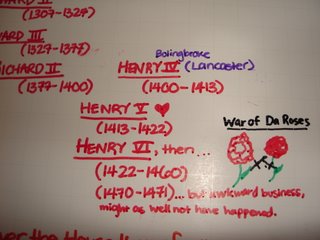 (1307-1327)
III
(1327-1377)
RICHARD II
(1377-1400)
Bolingbroke
HENRY IV (Lancaster)
(1400-1413)
HENRY V
(1413-1422)
HENRY VI, then...
(1422-1460)
(1470-1471)... but awkward business,
might as well not have happened.
War of Da Roses